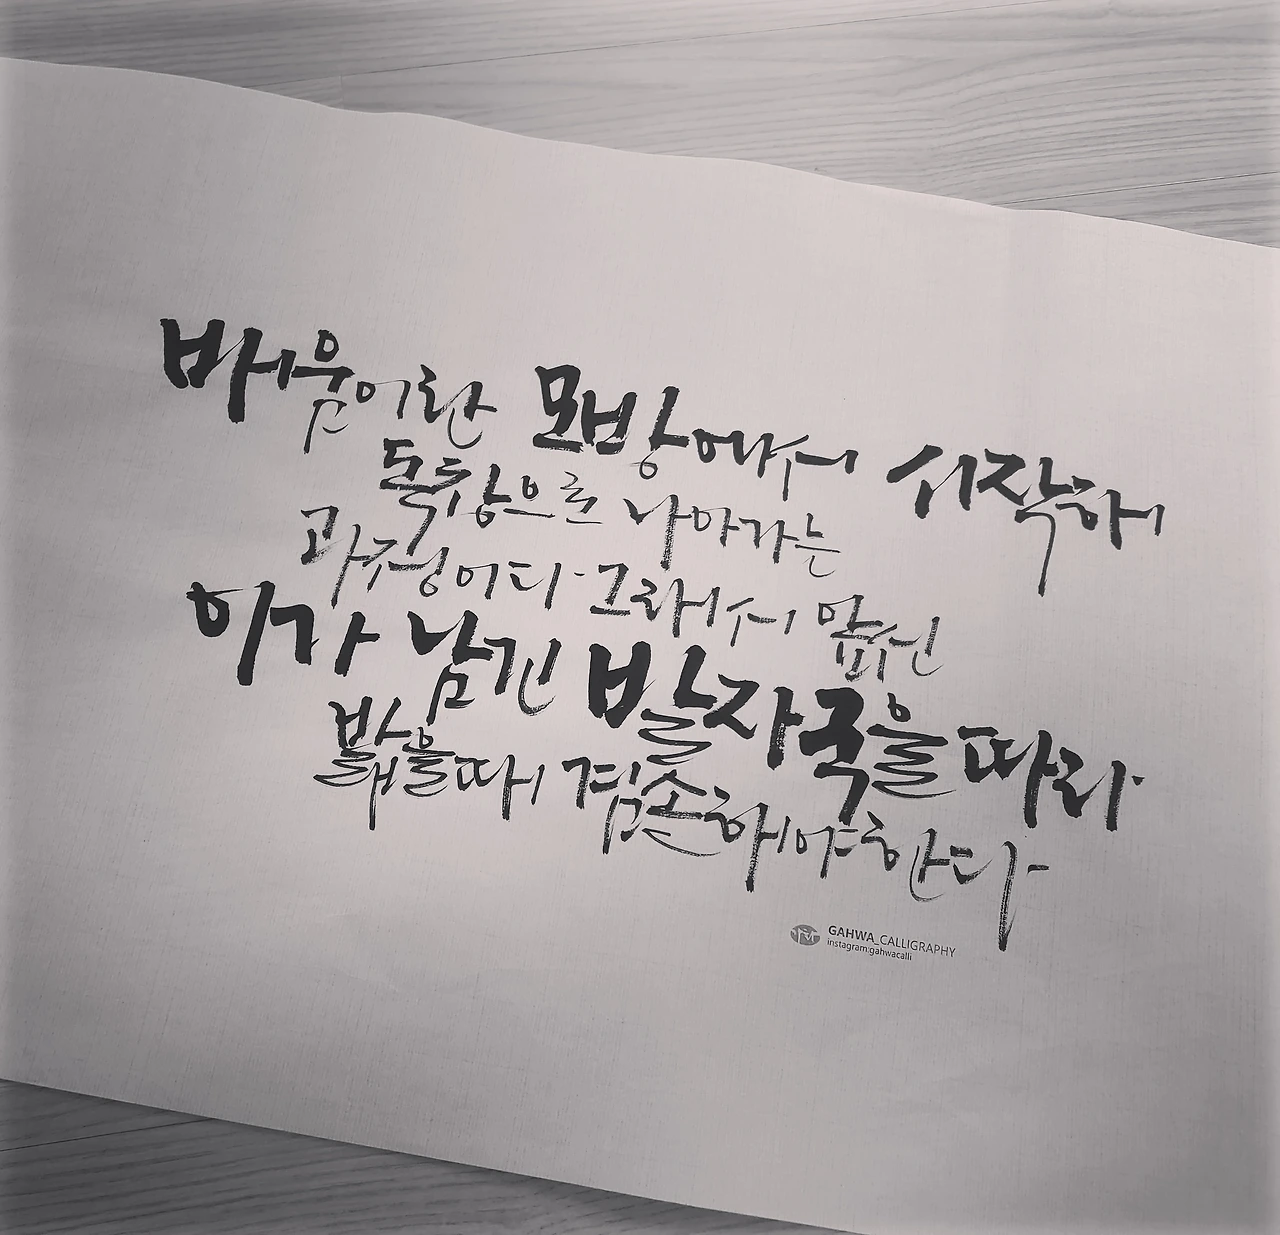 배움이란 모방에서 시작해
독창으로 나아가는
과정이다. 그래서 앞선
이가 남긴 발자국을 따라
밟을 때 겸손해야 한다.
GAHWA_CALLIGRAPHY
instagram:gahwacalli